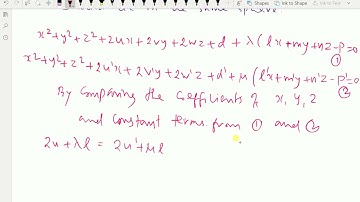 Ink to Shape
Ink to Text
x²+y²+z²+2ux+2vy+2wz+d+λ(lx+my+nz-p=0 ①
x²+y²+z²+2u'x+2v'y+2w'z+d'+μ(l'x+m'y+n'z-p'=0 ②
By comparing the coefficients of x, y, z
and constant terms from ① and ②
2u+λl = 2u'+μl